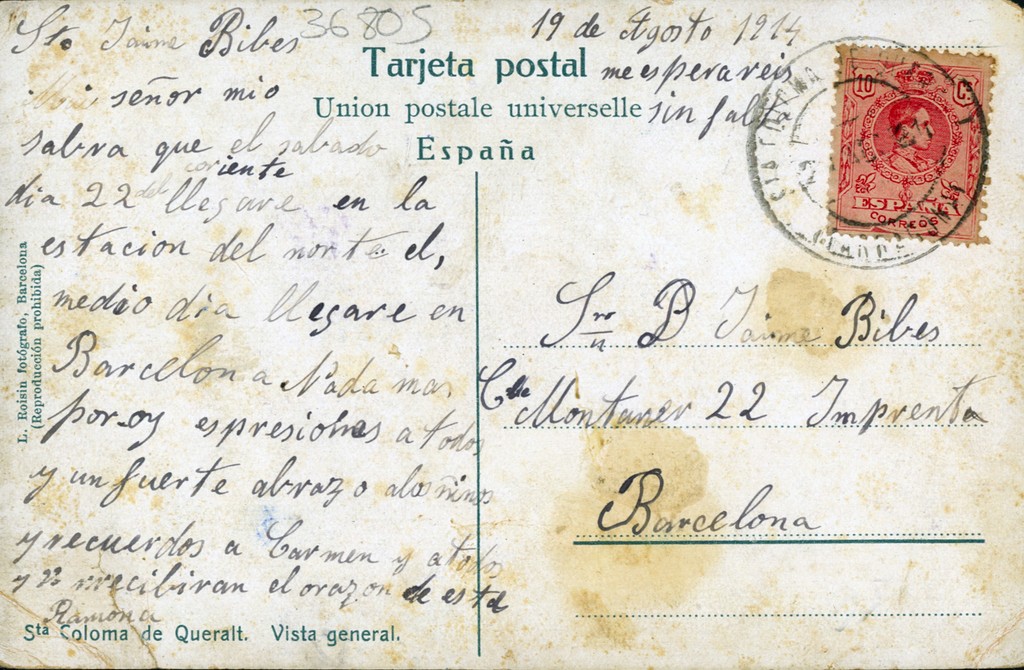 36805
19 de Agosto 1914
Sto. Jaime Bibes
Tarjeta postal
me esperareis
señor mio
Union postale universelle
sin falta
sabra que el sabado
España
del coriente
dia 22 llegare en la
estacion del norte el,
medio dia llegare en
Barcelona Nada mas
por oy espresiones a todos
y un fuerte abrazo a los niños
y recuerdos a Carmen y a todos
recibiran el orazon de esta
Ramona
10 Cs
ESPAÑA
CORREOS
Jaime Bibes
Montaner 22 Imprenta
Barcelona
L. Roisin fotógrafo, Barcelona
(Reproducción prohibida)
Sta Coloma de Queralt. Vista general.